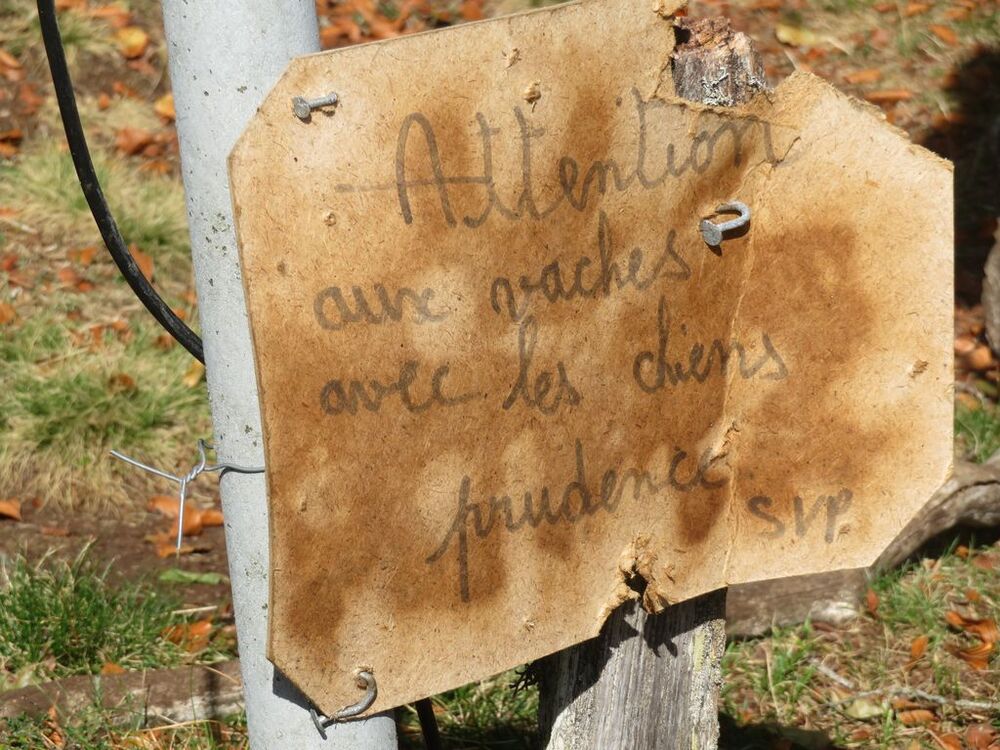 Attention
aux vaches
avec les chiens
prudence SVP